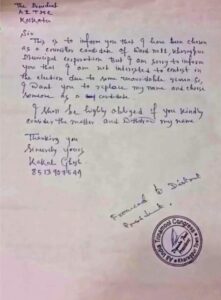 The President
A I T M C
Kolkata
Sir
This is to inform you that I have been chosen
as a councilor candidate of Ward no 11
Municipal corporation. But I am sorry to inform
you that I am not interested to contest in
the election due to some unavoidable reason. So,
I want you to replace my name and choose
someone as a candidate.
I shall be highly obliged if you kindly
consider the matter and my name
Thanking you
Sincerely yours
Kakali Ghosh
Forward to District
President.
Trinamool Congress